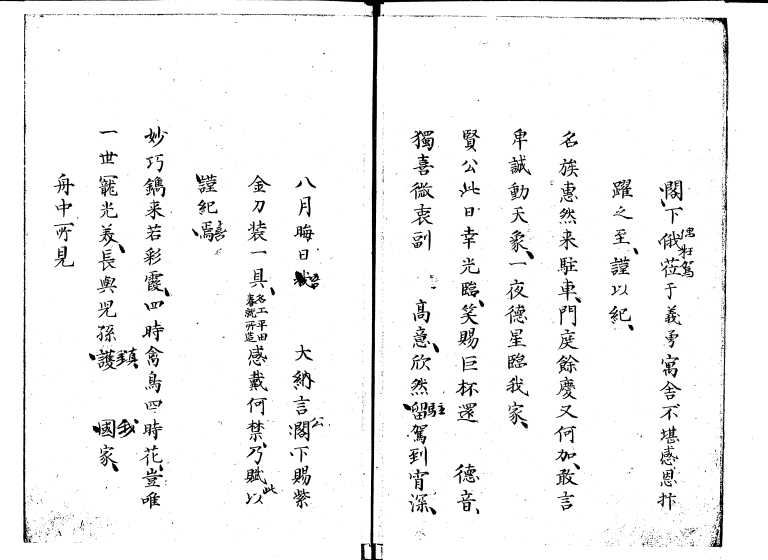 閣下俄枉駕莅于義勇寓舎不堪感恩抃
躍之至謹以紀
名族惠然来駐車門庭餘慶又何加敢言
卑誠動天象一夜德星臨我家
賢公此日幸光臨笑賜巨杯還 德音
獨喜微衷副 高意欣然留駐駕到宵深
八月晦日 大納言公閣下賜紫
金刀装一具名工平田春就所造感戴何禁乃賦此以
謹紀喜焉
妙巧鐫来若彩霞四時禽鳥四時花豈唯
一世寵光美長與児孫護鎮 國我家
舟中所見